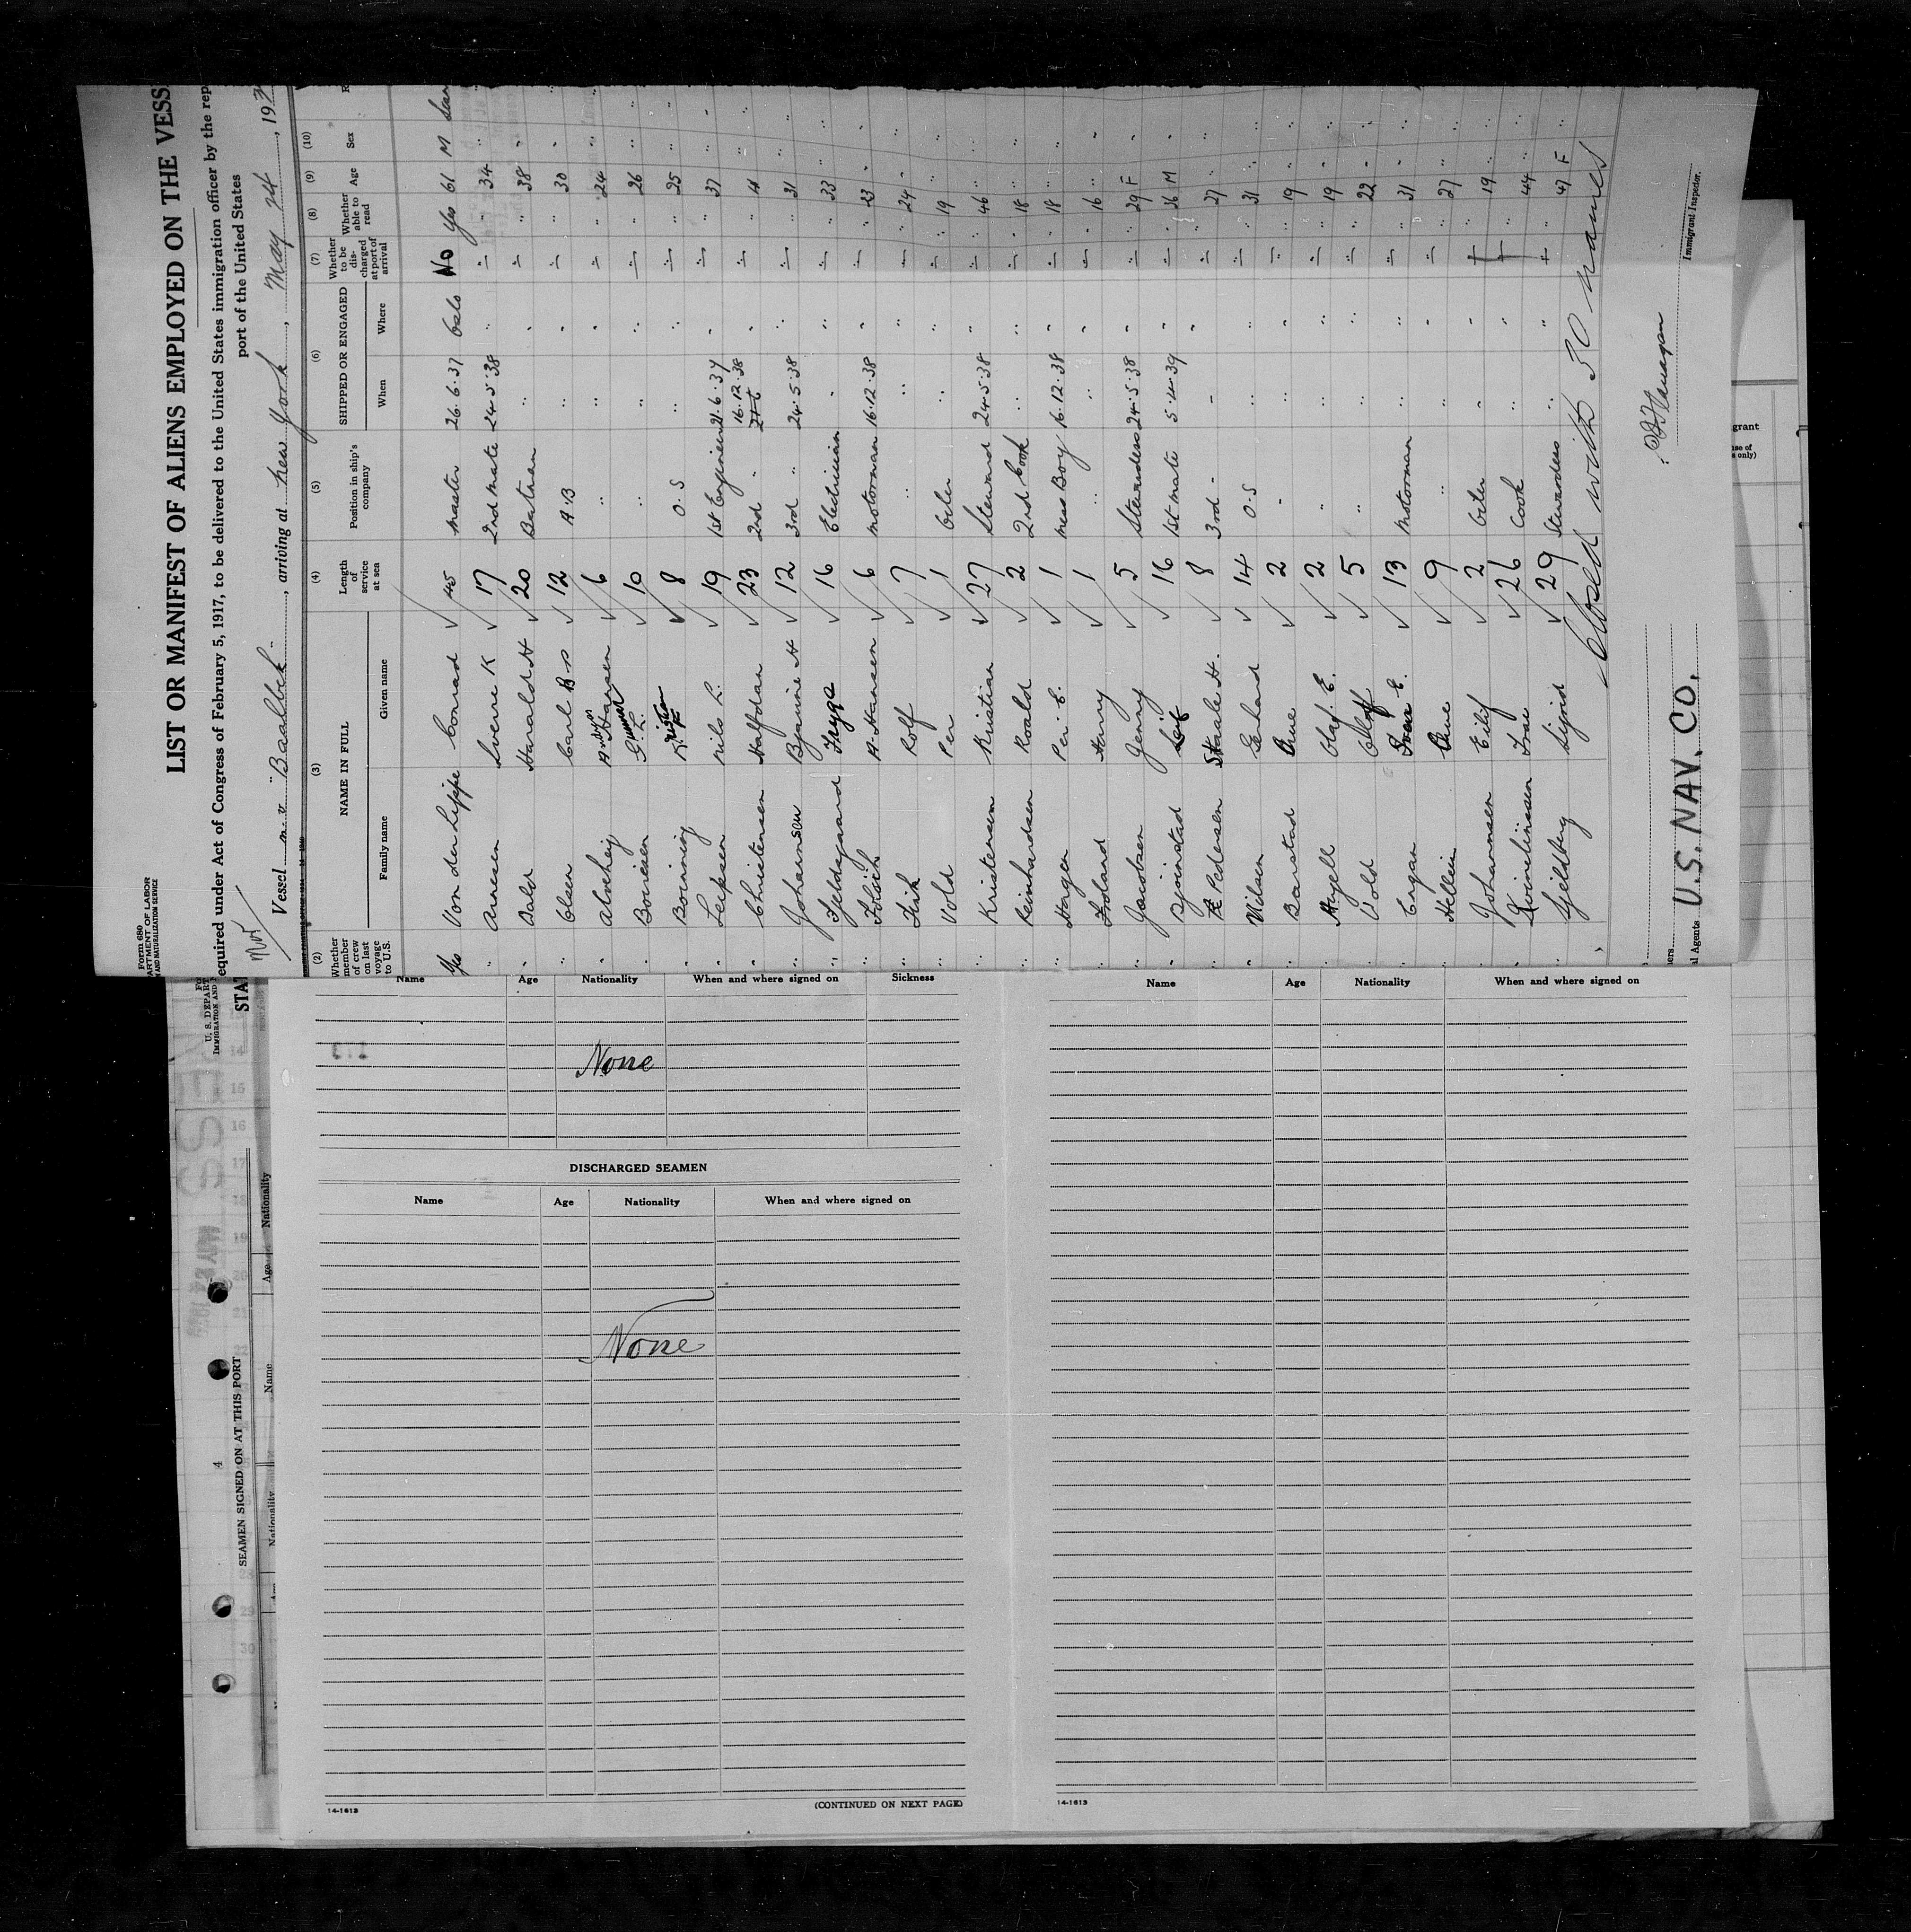 Form 680
LIST OR MANIFEST OF ALIENS EMPLOYED ON THE VESS
equired under Act of Congress of February 5, 1917, to be delivered to the United States immigration officer by the rep
port of the United States
Vessel m.v. "Baalbek", arriving at New York, May 24, 193
(2) (3) (4) (5) (6) (7) (8) (9) (10)
Whether member of crew on last voyage to U.S. NAME IN FULL Family name Given name Length of service at sea Position in ship's company SHIPPED OR ENGAGED When Where Whether to be discharged at port of arrival Whether able to read Age Sex
Yes Von der Lippe Conrad 45 Master 26.6.37 Oslo No Yes 61 M
" Arnesen Sverre K 17 2nd Mate 24.5.38 " " " 34 "
" Harald H 20 " " " " 38 "
" Olsen Carl 12 A.B " " " " 30 "
" Hansen 6 " " " " " 24 "
" Gunnar 10 " " " " " 26 "
" 8 O.S " " " " 25 "
" Nils L. 19 1st Engineer 21.6.37 " " " 37 "
" Christensen Halfdan 23 2nd " 16.12.38 " " " 41 "
" Johannsen Bjarne H 12 3rd " 24.5.38 " " " 31 "
" Fjeldsgaard Trygve 16 Electrician " " " " 33 "
" A. Hansen 6 Motorman 16.12.38 " " " 23 "
" Rolf 7 " " " " " 24 "
" Vold Per 1 Oiler " " " " 19 "
" Kristensen Kristian 27 Steward 24.5.38 " " " 46 "
" Reinhardsen Roald 2 2nd Cook " " " " 18 "
" Hagen Per E. 1 Mess Boy 16.12.38 " " " 18 "
" Froland Henry 1 " " " " " 16 "
" Jacobsen Jenny 5 Stewardess 24.5.38 " " " 29 F
" Bjoinstad Leif 16 1st Mate 5.4.39 " " " 36 M
" Pedersen Staale H. 8 3rd " " " " " 27 "
" Nilsen Gerhard 14 O.S " " " " 31 "
" Baarstad Arne 2 " " " " " 19 "
" Olaf. E. 2 " " " " " 19 "
" Vold Olaf 5 " " " " " 22 "
" Engan Ivar E. 13 Motorman " " " " 31 "
" Arne 9 " " " " " 27 "
" Johannsen Eilif 2 Oiler " " " " 19 "
" Ivar 26 Cook " " " " 44 "
" Gjeldberg Sigrid 29 Stewardess " " " " 47 F
Closed with 30 names
U.S. NAV. CO.
l Agents
Immigrant Inspector.
Name Age Nationality When and where signed on Sickness
None
DISCHARGED SEAMEN
Name Age Nationality When and where signed on
None
14-1613
(CONTINUED ON NEXT PAGE)
Name Age Nationality When and where signed on
14-1613
4
SEAMEN SIGNED ON AT THIS PORT
Name Age Nationality
Nationality